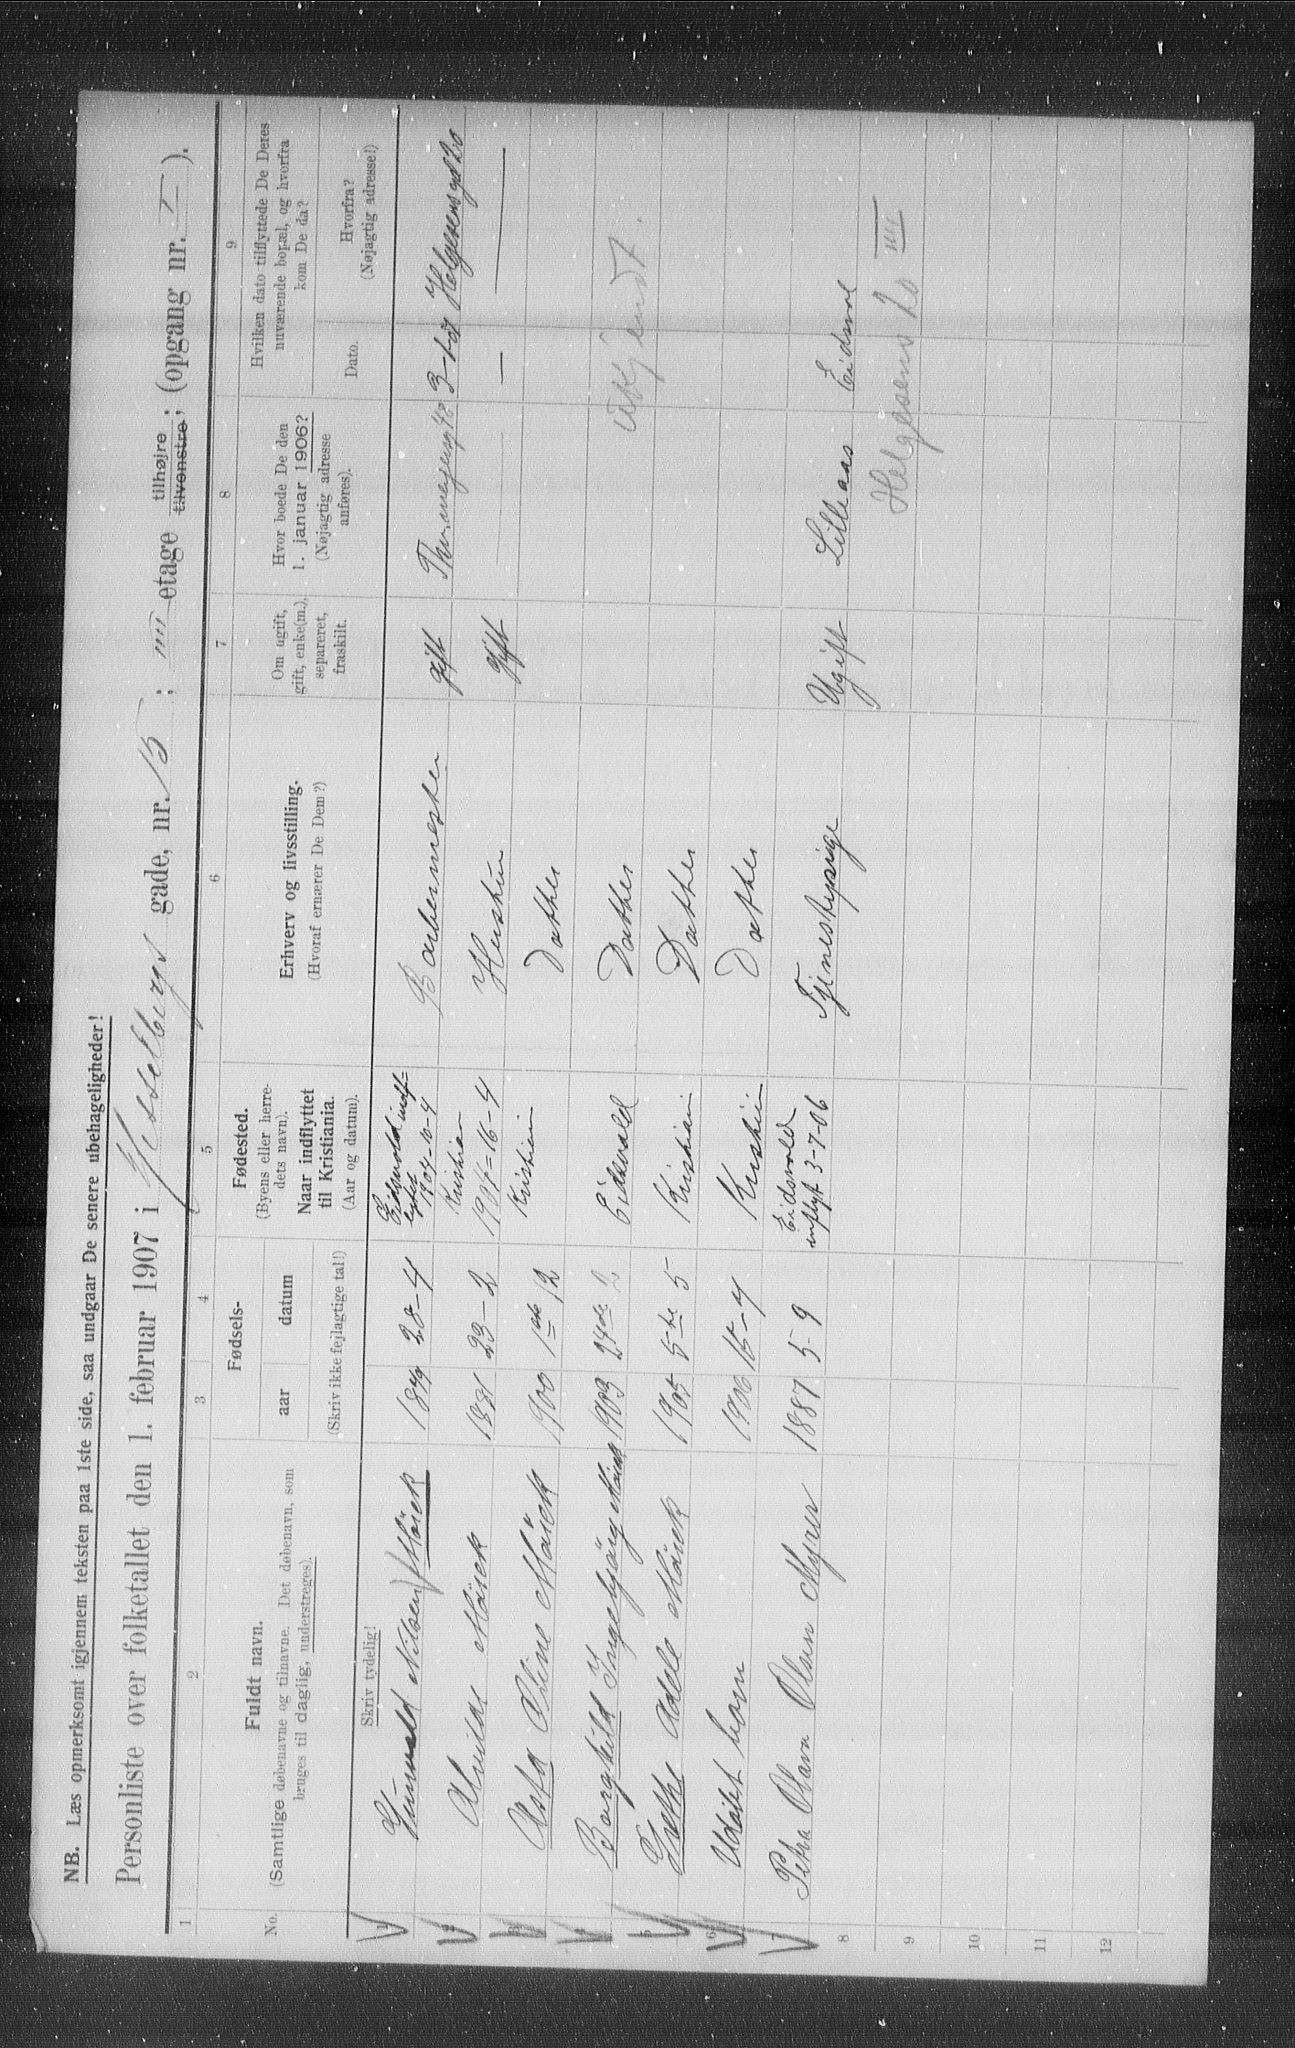 NB. Læs opmerksomt igjennem teksten paa 1ste side, saa undgaar De senere ubehageligheder!
Personliste over folketallet den 1. februar 1907 i Hesselbergs gade, nr. 15; III etage tilhøjre tilvenstre; (opgang nr. I).
1 2 3 4 5 6 7 8 9
No.
Fuldt navn.
(Samtlige døbenavne og tilnavne. Det døbenavn, som
bruges til daglig, understreges).
Fødsels-
aar datum
Fødested.
(Byens eller herre-
dets navn).
Naar indflyttet
til Kristiania.
(Aar og datum).
Erhverv og livsstilling.
(Hvoraf ernærer De Dem?)
Om ugift,
gift, enke(m.),
separeret,
fraskilt.
Hvor boede De den
1. januar 1906?
(Nøjagtig adresse
anføres).
Hvilken dato tilflyttede De Deres
nuværende bopæl, og hvorfra
kom De da?
Dato.
Hvorfra?
(Nøjagtig adresse!)
Skriv tydelig!
(Skriv ikke fejlagtige tal!)
1 Nilsen Mörek 1879 28-4 Eidsvold indf-
lyttet 1904-10-4 gift 3-1-07 Helgesens gd 20
2 Alvilde Mörek 1881 23-2 Kristian
1904-16-4 Hustru Gift — —
3 Asta Oline Mörek 1900 1ste 12 Kristian Datter
4 Borghild Ingebjörg Mörek 1903 24de Eidsvold Datter ukjendt.
5 Grethe Adele Mörek 1905 5te 5 Kristian Datter
6 Udöbt barn 1906 15-4 Kristian Datter
7 Petra Olava Olsen Myrer 1887 5-9 Eidsvold
inflyt 3-7-06 Tjenestepige Ugift Lilleaas Eidsvol
8 Helgesens 20 III
9
10
11
12